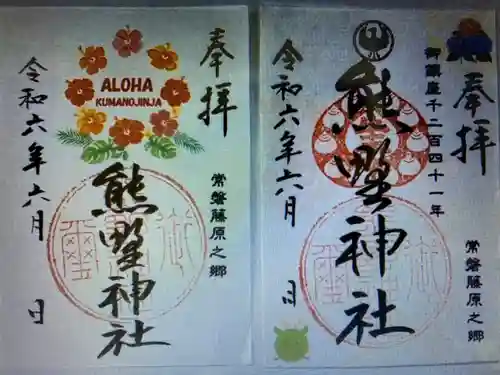 奉拝
常磐藤原之郷
ALOHA
KUMANOJINJA
熊野神社
令和六年六月 日
奉拝
常磐藤原之郷
御鎮座千二百四十一年
熊野神社
令和六年六月 日